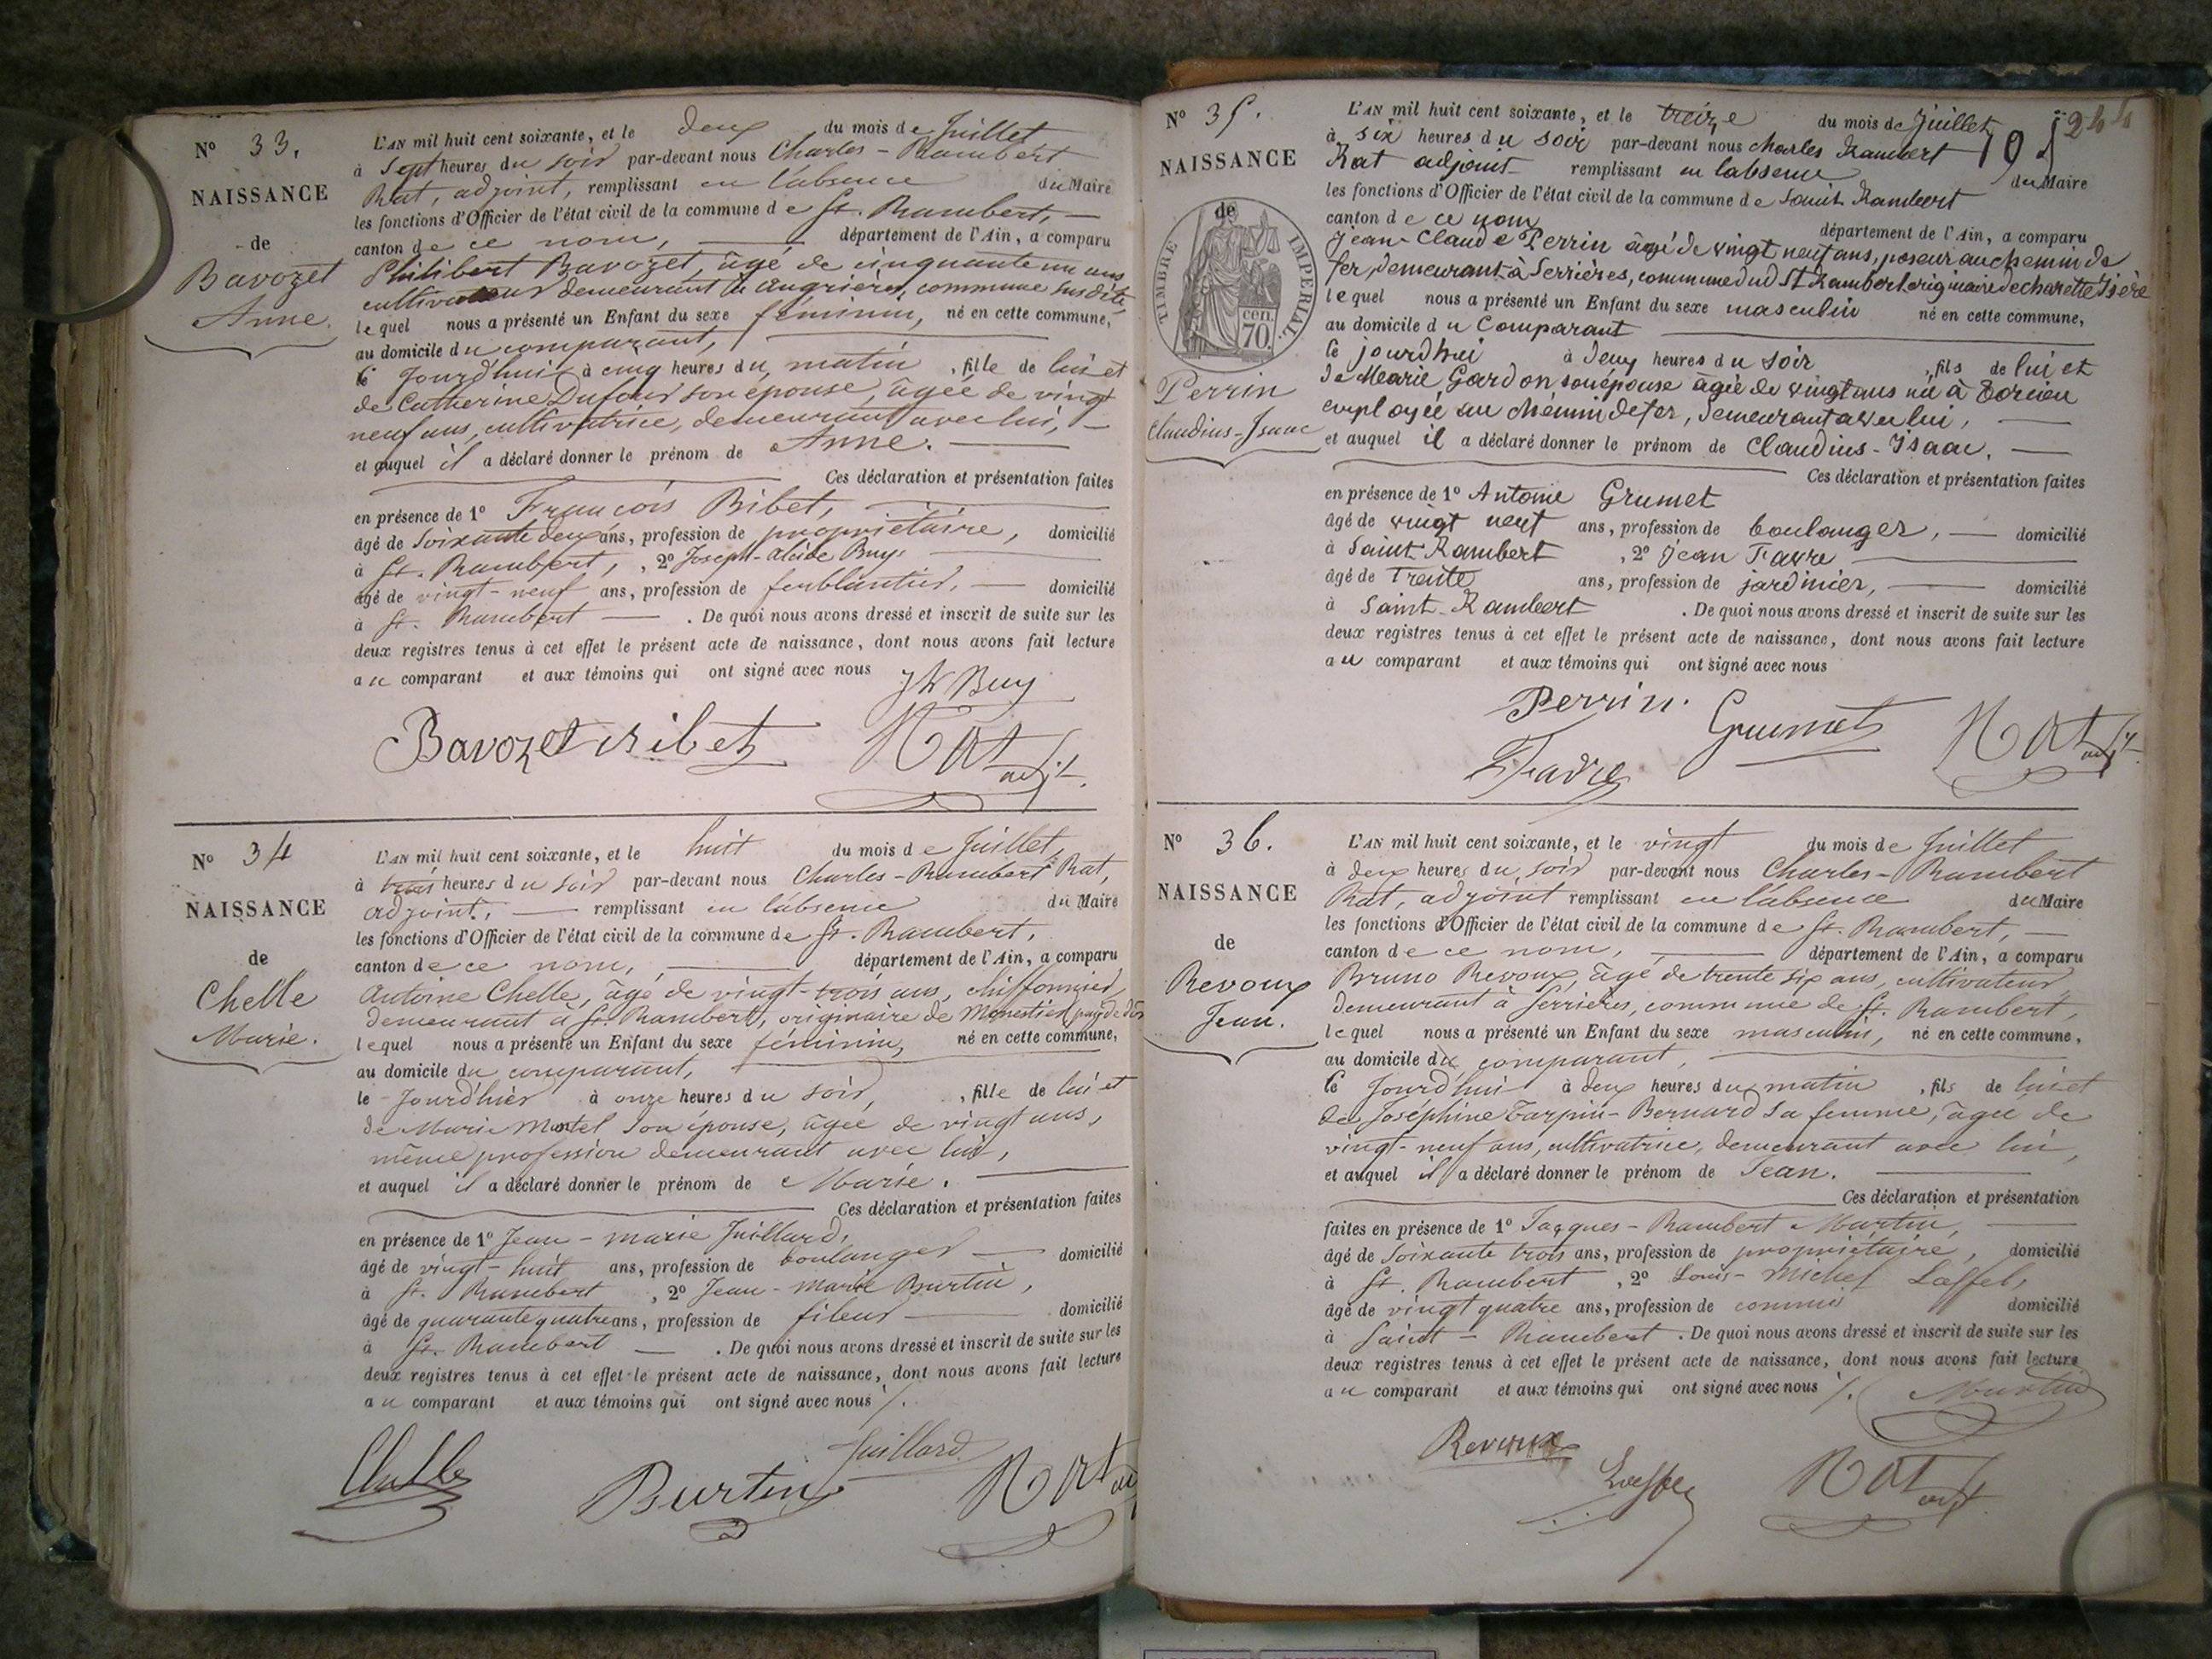 N° 33.
NAISSANCE
de
Bavozet
Anne.
L'AN mil huit cent soixante, et le deux du mois de Juillet
à Sept heures du soir par-devant nous Charles-Rambert
Rat, adjoint, remplissant en l'absence du Maire
les fonctions d'Officier de l'état civil de la commune de St. Rambert,
canton de ce nom, département de l'Ain, a comparu
Philibert Bavozet, âgé de cinquante un ans
cultivateur demeurant à angrières, commune susdite,
lequel nous a présenté un Enfant du sexe féminin, né en cette commune,
au domicile du comparant,
ce Jourd'hui à cinq heures du matin, fille de lui et
de Catherine Dufour son épouse, âgée de vingt
neuf ans, cultivatrice, demeurant avec lui,
et auquel il a déclaré donner le prénom de Anne.
Ces déclaration et présentation faites
en présence de 1° François Ribet,
âgé de Soixante deux ans, profession de propriétaire, domicilié
à St. Rambert, , 2° Joseph-alcide Buy
âgé de vingt-neuf ans, profession de ferblantier, domicilié
à St. Rambert . De quoi nous avons dressé et inscrit de suite sur les
deux registres tenus à cet effet le présent acte de naissance, dont nous avons fait lecture
au comparant et aux témoins qui ont signé avec nous
Buy
Bavozet ribet Rat adjt.
N° 34
NAISSANCE
de
Chelle
Marie.
L'AN mil huit cent soixante, et le huit du mois de Juillet,
à trois heures du soir par-devant nous Charles-Rambert Rat,
adjoint, remplissant en l'absence du Maire
les fonctions d'Officier de l'état civil de la commune de St. Rambert,
canton de ce nom, département de l'Ain, a comparu
Antoine Chelle, âgé de vingt-trois ans, chiffonnier,
demeurant à St. Rambert, originaire de Monestier puy de dôm
lequel nous a présenté un Enfant du sexe féminin, né en cette commune,
au domicile du comparant,
le Jourd'hier à onze heures du soir, , fille de lui et
de Marie Martel son épouse, âgée de vingt ans,
même profession demeurant avec lui,
et auquel il a déclaré donner le prénom de Marie.
Ces déclaration et présentation faites
en présence de 1° Jean-marie Juillard,
âgé de vingt-huit ans, profession de boulanger domicilié
à St. Rambert , 2° Jean-Marie Burtin,
âgé de quarante quatre ans, profession de fileur domicilié
à St. Rambert . De quoi nous avons dressé et inscrit de suite sur les
deux registres tenus à cet effet le présent acte de naissance, dont nous avons fait lecture
au comparant et aux témoins qui ont signé avec nous /.
Juillard
Chelle Burtin Rat
N° 35.
NAISSANCE
de
TIMBRE IMPÉRIAL
cen.
70.
Perrin
Claudius-Isaac
L'AN mil huit cent soixante, et le treize du mois de Juillet
à six heures du soir par-devant nous charles Rambert
Rat adjoint remplissant en labsence du Maire
les fonctions d'Officier de l'état civil de la commune de Saint Rambert
canton de ce nom département de l'Ain, a comparu
jean-Claude Perrin âgé de vingt neuf ans, poseur au chemin de
fer, demeurant à Serrières, commune dud St Rambert originaire de charette Isère
lequel nous a présenté un Enfant du sexe masculin né en cette commune,
au domicile du Comparant
Ce jourdhui à deux heures du soir , fils de lui et
de Marie Gardon son épouse âgée de vingt ans née à Torcieu
employée au chemin de fer, demeurant avec lui,
et auquel il a déclaré donner le prénom de Claudius-Isaac.
Ces déclaration et présentation faites
en présence de 1° Antoine Grumet
âgé de vingt neuf ans, profession de boulanger, domicilié
à Saint Rambert , 2° jean Favre
âgé de trente ans, profession de jardinier, domicilié
à Saint-Rambert . De quoi nous avons dressé et inscrit de suite sur les
deux registres tenus à cet effet le présent acte de naissance, dont nous avons fait lecture
au comparant et aux témoins qui ont signé avec nous
Perrin. Grumet Rat adjt
Favre
N° 36.
NAISSANCE
de
Revoux
Jean.
L'AN mil huit cent soixante, et le vingt du mois de Juillet
à deux heures du soir par-devant nous Charles-Rambert
Rat, adjoint remplissant en l'absence du Maire
les fonctions d'Officier de l'état civil de la commune de St. Rambert,
canton de ce nom, département de l'Ain, a comparu
Bruno Revoux, âgé de trente six ans, cultivateur
demeurant à Serrières, commune de St. Rambert,
lequel nous a présenté un Enfant du sexe masculin, né en cette commune,
au domicile du comparant,
Ce Jourd'hui à deux heures du matin , fils de lui et
de Joséphine Tarpin-Bernard sa femme, âgée de
vingt-neuf ans, cultivatrice, demeurant avec lui,
et auquel il a déclaré donner le prénom de Jean.
Ces déclaration et présentation
faites en présence de 1° Jacques-Rambert Martin,
âgé de Soixante trois ans, profession de propriétaire, domicilié
à St. Rambert , 2° Louis-Michel
âgé de vingt quatre ans, profession de commis domicilié
à Saint-Rambert . De quoi nous avons dressé et inscrit de suite sur les
deux registres tenus à cet effet le présent acte de naissance, dont nous avons fait lecture
au comparant et aux témoins qui ont signé avec nous /. Martin
Revoux Rat adjt